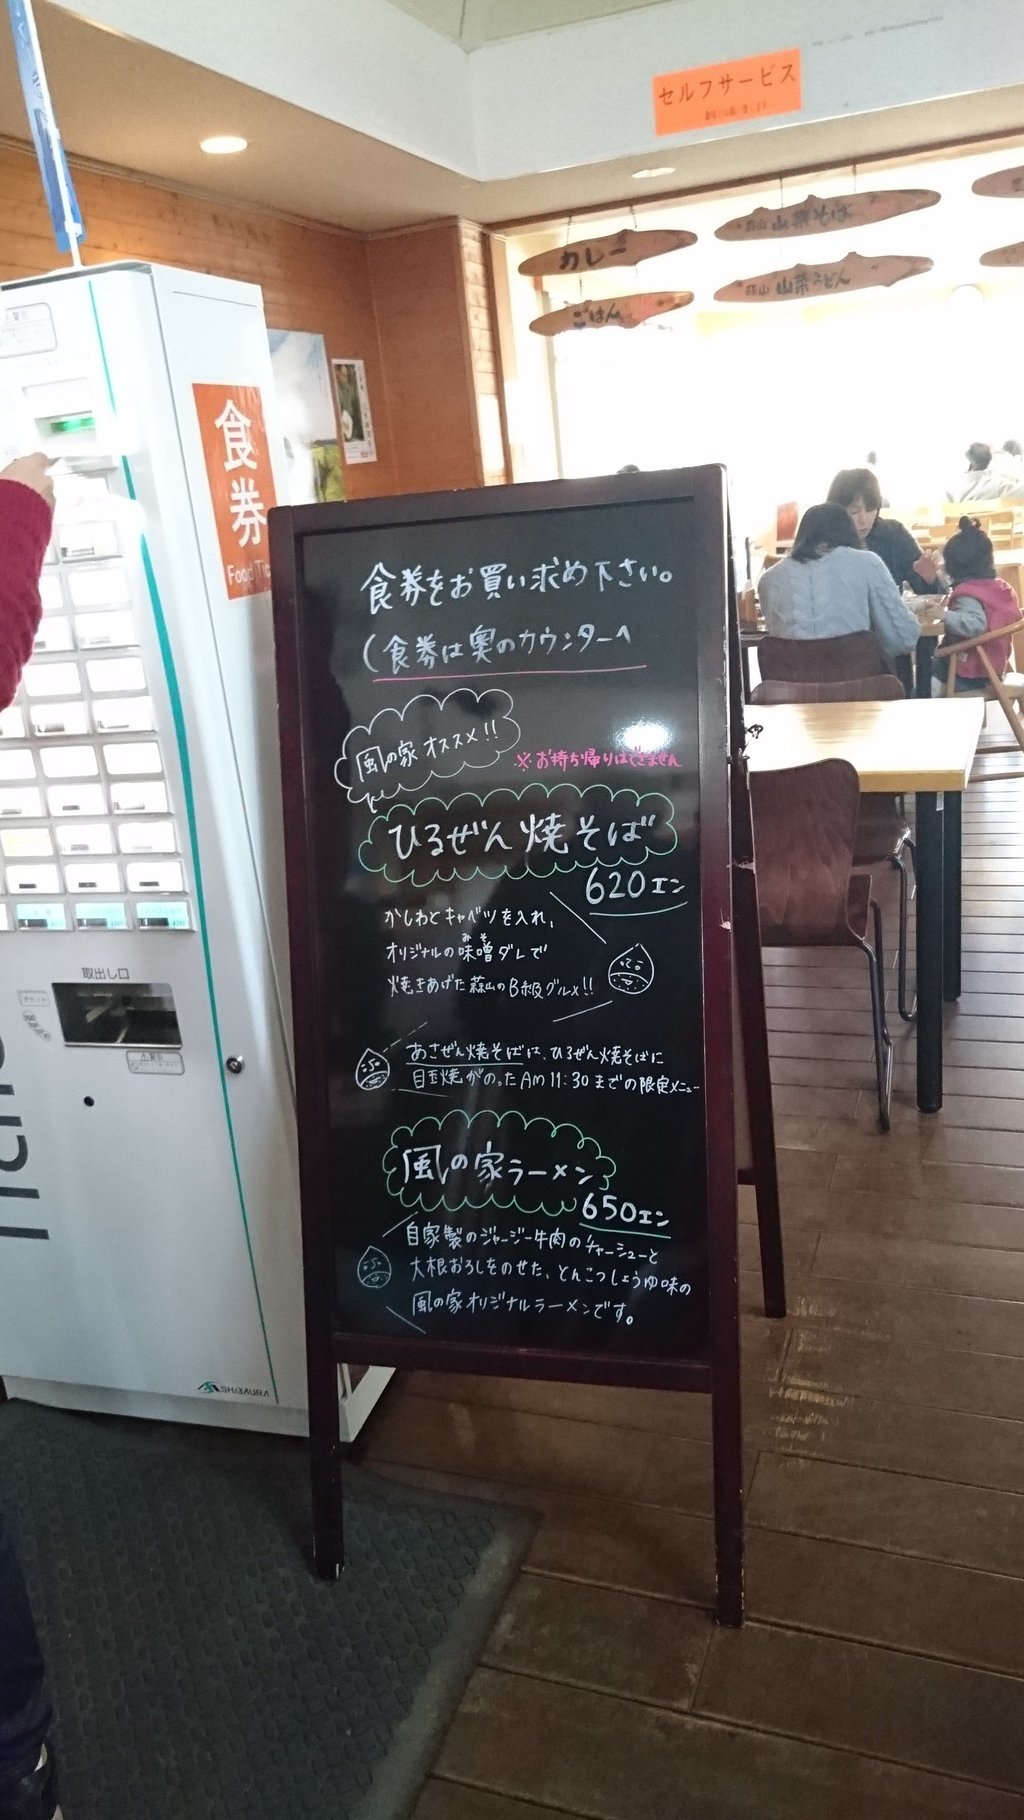 セルフサービス
カレー
ごはん
山菜そば
山菜うどん
食券
Food Tic
食券をお買い求め下さい。
(食券は奥のカウンターへ
風の家 オススメ!!
※お持ち帰りはできません
ひるぜん焼そば
620エン
かしわとキャベツを入れ、
オリジナルの味噌ダレで
みそ
焼きあげた蒜山のB級グルメ!!
あさぜん焼そばは、ひるぜん焼そばに
目玉焼がのったAm 11:30までの限定メニュー
風の家ラーメン
650エン
自家製のジャージー牛肉のチャーシューと
大根おろしをのせた、とんこつしょうゆ味の
風の家オリジナルラーメンです。
取出し口
チケット
SHIBAURA